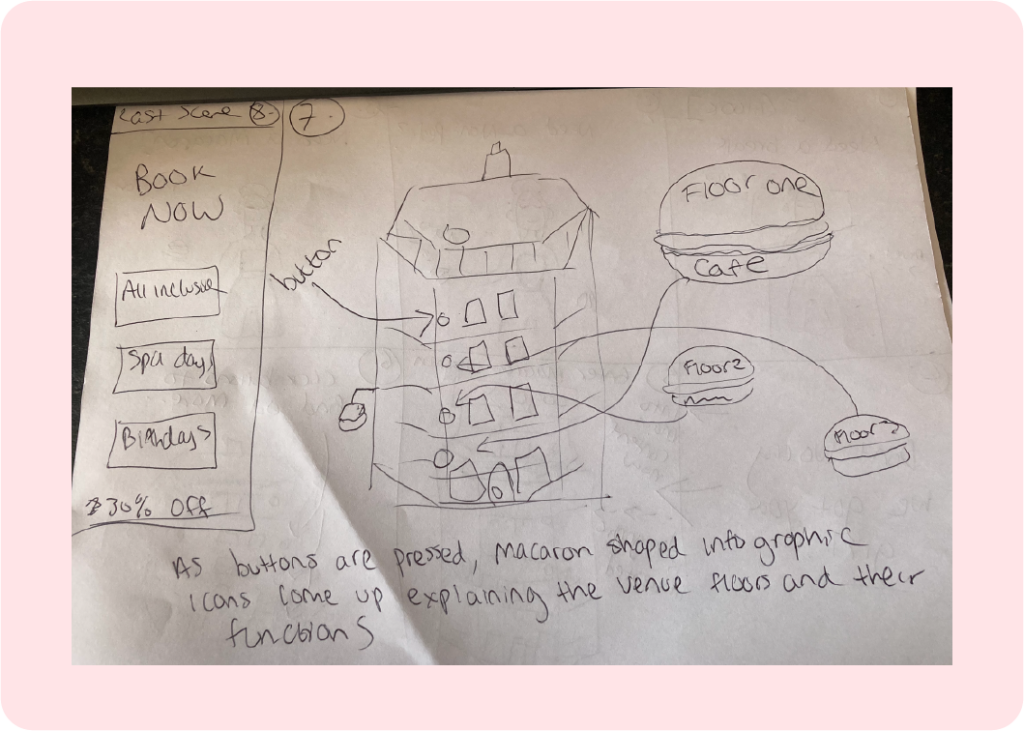 Last Scene 8.
BOOK
NOW
All inclusive
Spa days
Birthdays
30% OFF
7.
button
Floor one
Cafe
Floor 2
Floor 3
As buttons are pressed, macaron shaped infographic
icons come up explaining the venue floors and their
functions